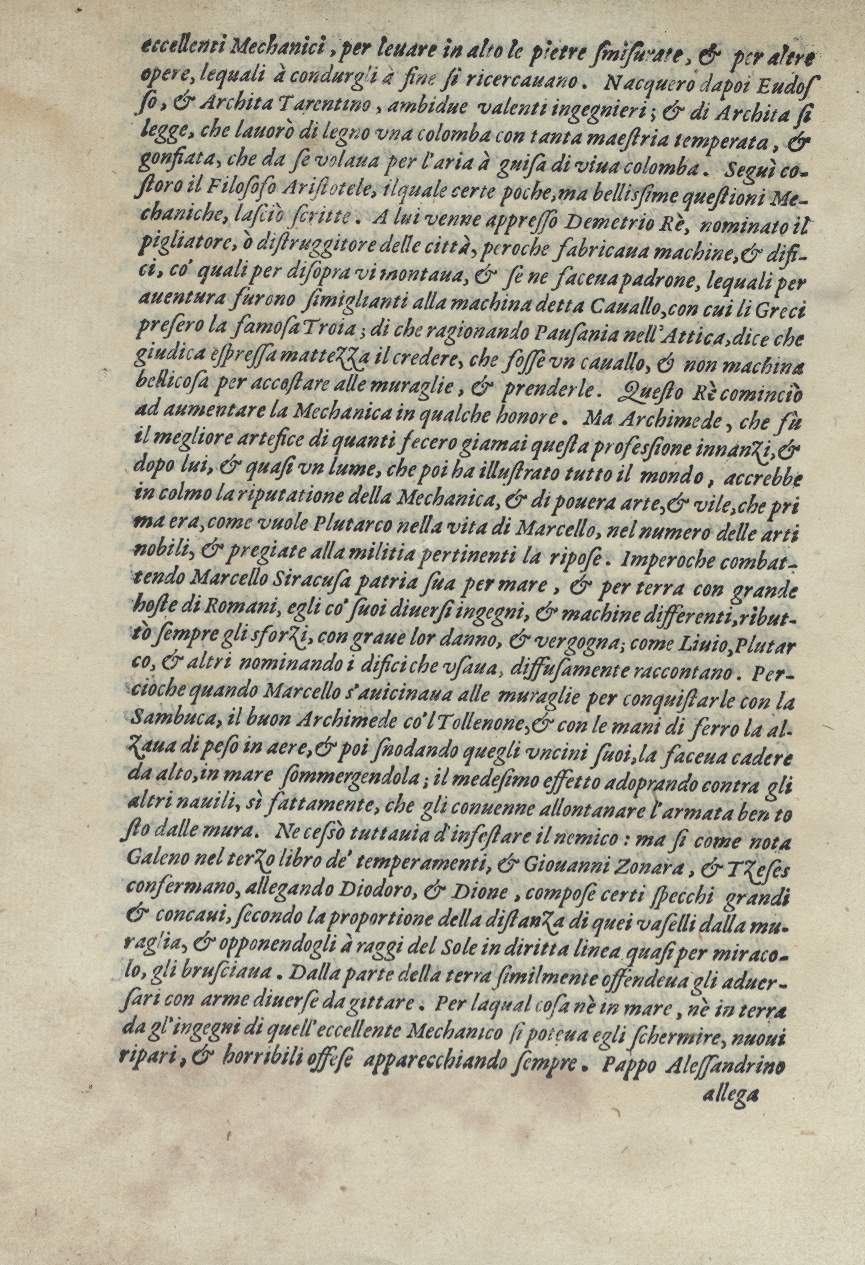 eccellenti Mechanici, per leuare in alto le pietre ſmiſurate, & per altre
opere, lequali à condurgli à fine ſi ricercauano. Nacquero dapoi Eudoſ
ſo, & Archita Tarentino, ambidue valenti ingegnieri; & di Archita ſi
legge, che lauorò di legno vna colomba con tanta maeſtria temperata, &
gonfiata, che da ſe volaua per l'aria à guiſa di viua colomba. Seguì co-
ſtoro il Filoſoſo Ariſtotele, ilquale certe poche, ma belliſſime queſtioni Me-
chaniche, laſciò ſcritte. A lui venne appreſſo Demetrio Rè, nominato il
pigliatore, ò diſtruggitore delle città, peroche fabricaua machine, & difi-
ci, co' quali per diſopra vi montaua, & ſe ne facena padrone, lequali per
auentura furono ſimiglianti alla machina detta Cauallo, con cui li Greci
preſero la famoſa Troia; di che ragionando Pauſania nell'Attica, dice che
giudica eſpreſſa mattezza il credere, che foſſe vn cauallo, & non machina
bellicoſa per accoſtare alle muraglie, & prenderle. Queſto Rè cominciò
ad aumentare la Mechanica in qualche honore. Ma Archimede, che fù
il megliore artefice di quanti fecero giamai queſta profeſſione innanzi, &
dopo lui, & quaſi vn lume, che poi ha illuſtrato tutto il mondo, accrebbe
in colmo la riputatione della Mechanica, & di pouera arte, & vile, che pri
ma era, come vuole Plutarco nella vita di Marcello, nel numero delle arti
nobili, & pregiate alla militia pertinenti la ripoſe. Imperoche combat-
tendo Marcello Siracuſa patria ſua per mare, & per terra con grande
hoſte di Romani, egli co' ſuoi diuerſi ingegni, & machine differenti, ribut-
tò ſempre gli sforzi, con graue lor danno, & vergogna; come Liuio, Plutar
co, & altri nominando i difici che vſaua, diffuſamente raccontano. Per-
cioche quando Marcello s'auicinaua alle muraglie per conquiſtarle con la
Sambuca, il buon Archimede co'l Tollenone, & con le mani di ferro la al-
zaua di peſo in aere, & poi ſnodando quegli vncini ſuoi, la faceua cadere
da alto, in mare ſommergendola; il medeſimo effetto adoprando contra gli
altri nauili, sì fattamente, che gli conuenne allontanare l'armata ben to
ſto dalle mura. Ne ceſsò tuttauia d'infeſtare il nemico: ma ſi come nota
Galeno nel terzo libro de' temperamenti, & Giouanni Zonara, & Tzeſes
confermano, allegando Diodoro, & Dione, compoſe certi ſpecchi grandi
& concaui, ſecondo la proportione della diſtanza di quei vaſelli dalla mu-
raglia, & opponendogli à raggi del Sole in diritta linea quaſi per miraco-
lo, gli bruſciaua. Dalla parte della terra ſimilmente offendeua gli aduer-
ſari con arme diuerſe da gittare. Per laqual coſa nè in mare, nè in terra
da gl'ingegni di quell'eccellente Mechanico ſi poteua egli ſchermire, nuoui
ripari, & horribili offeſe apparecchiando ſempre. Pappo Aleſſandrino
allega